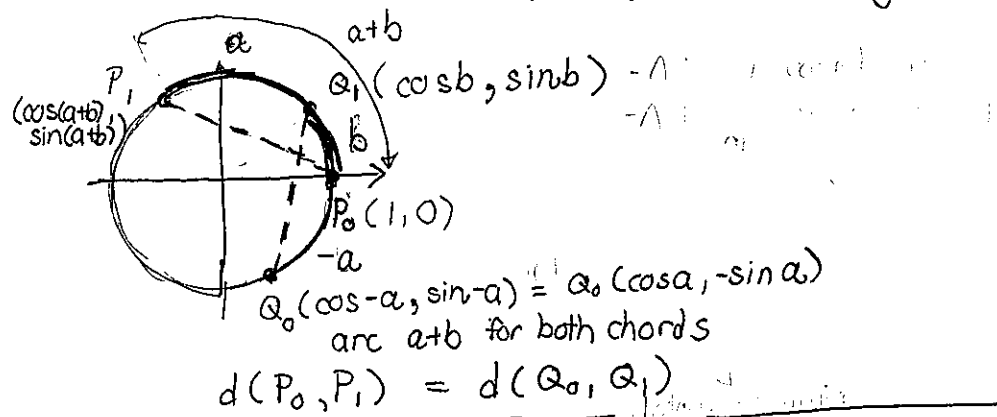 a+b
a
P₁
Q₁ (cosb, sinb)
(cos(a+b),
sin(a+b))
b
P₀ (1,0)
-a
Q₀ (cos-a, sin-a) = Q₀ (cosa, -sina)
arc a+b for both chords
d(P₀, P₁) = d(Q₀, Q₁)